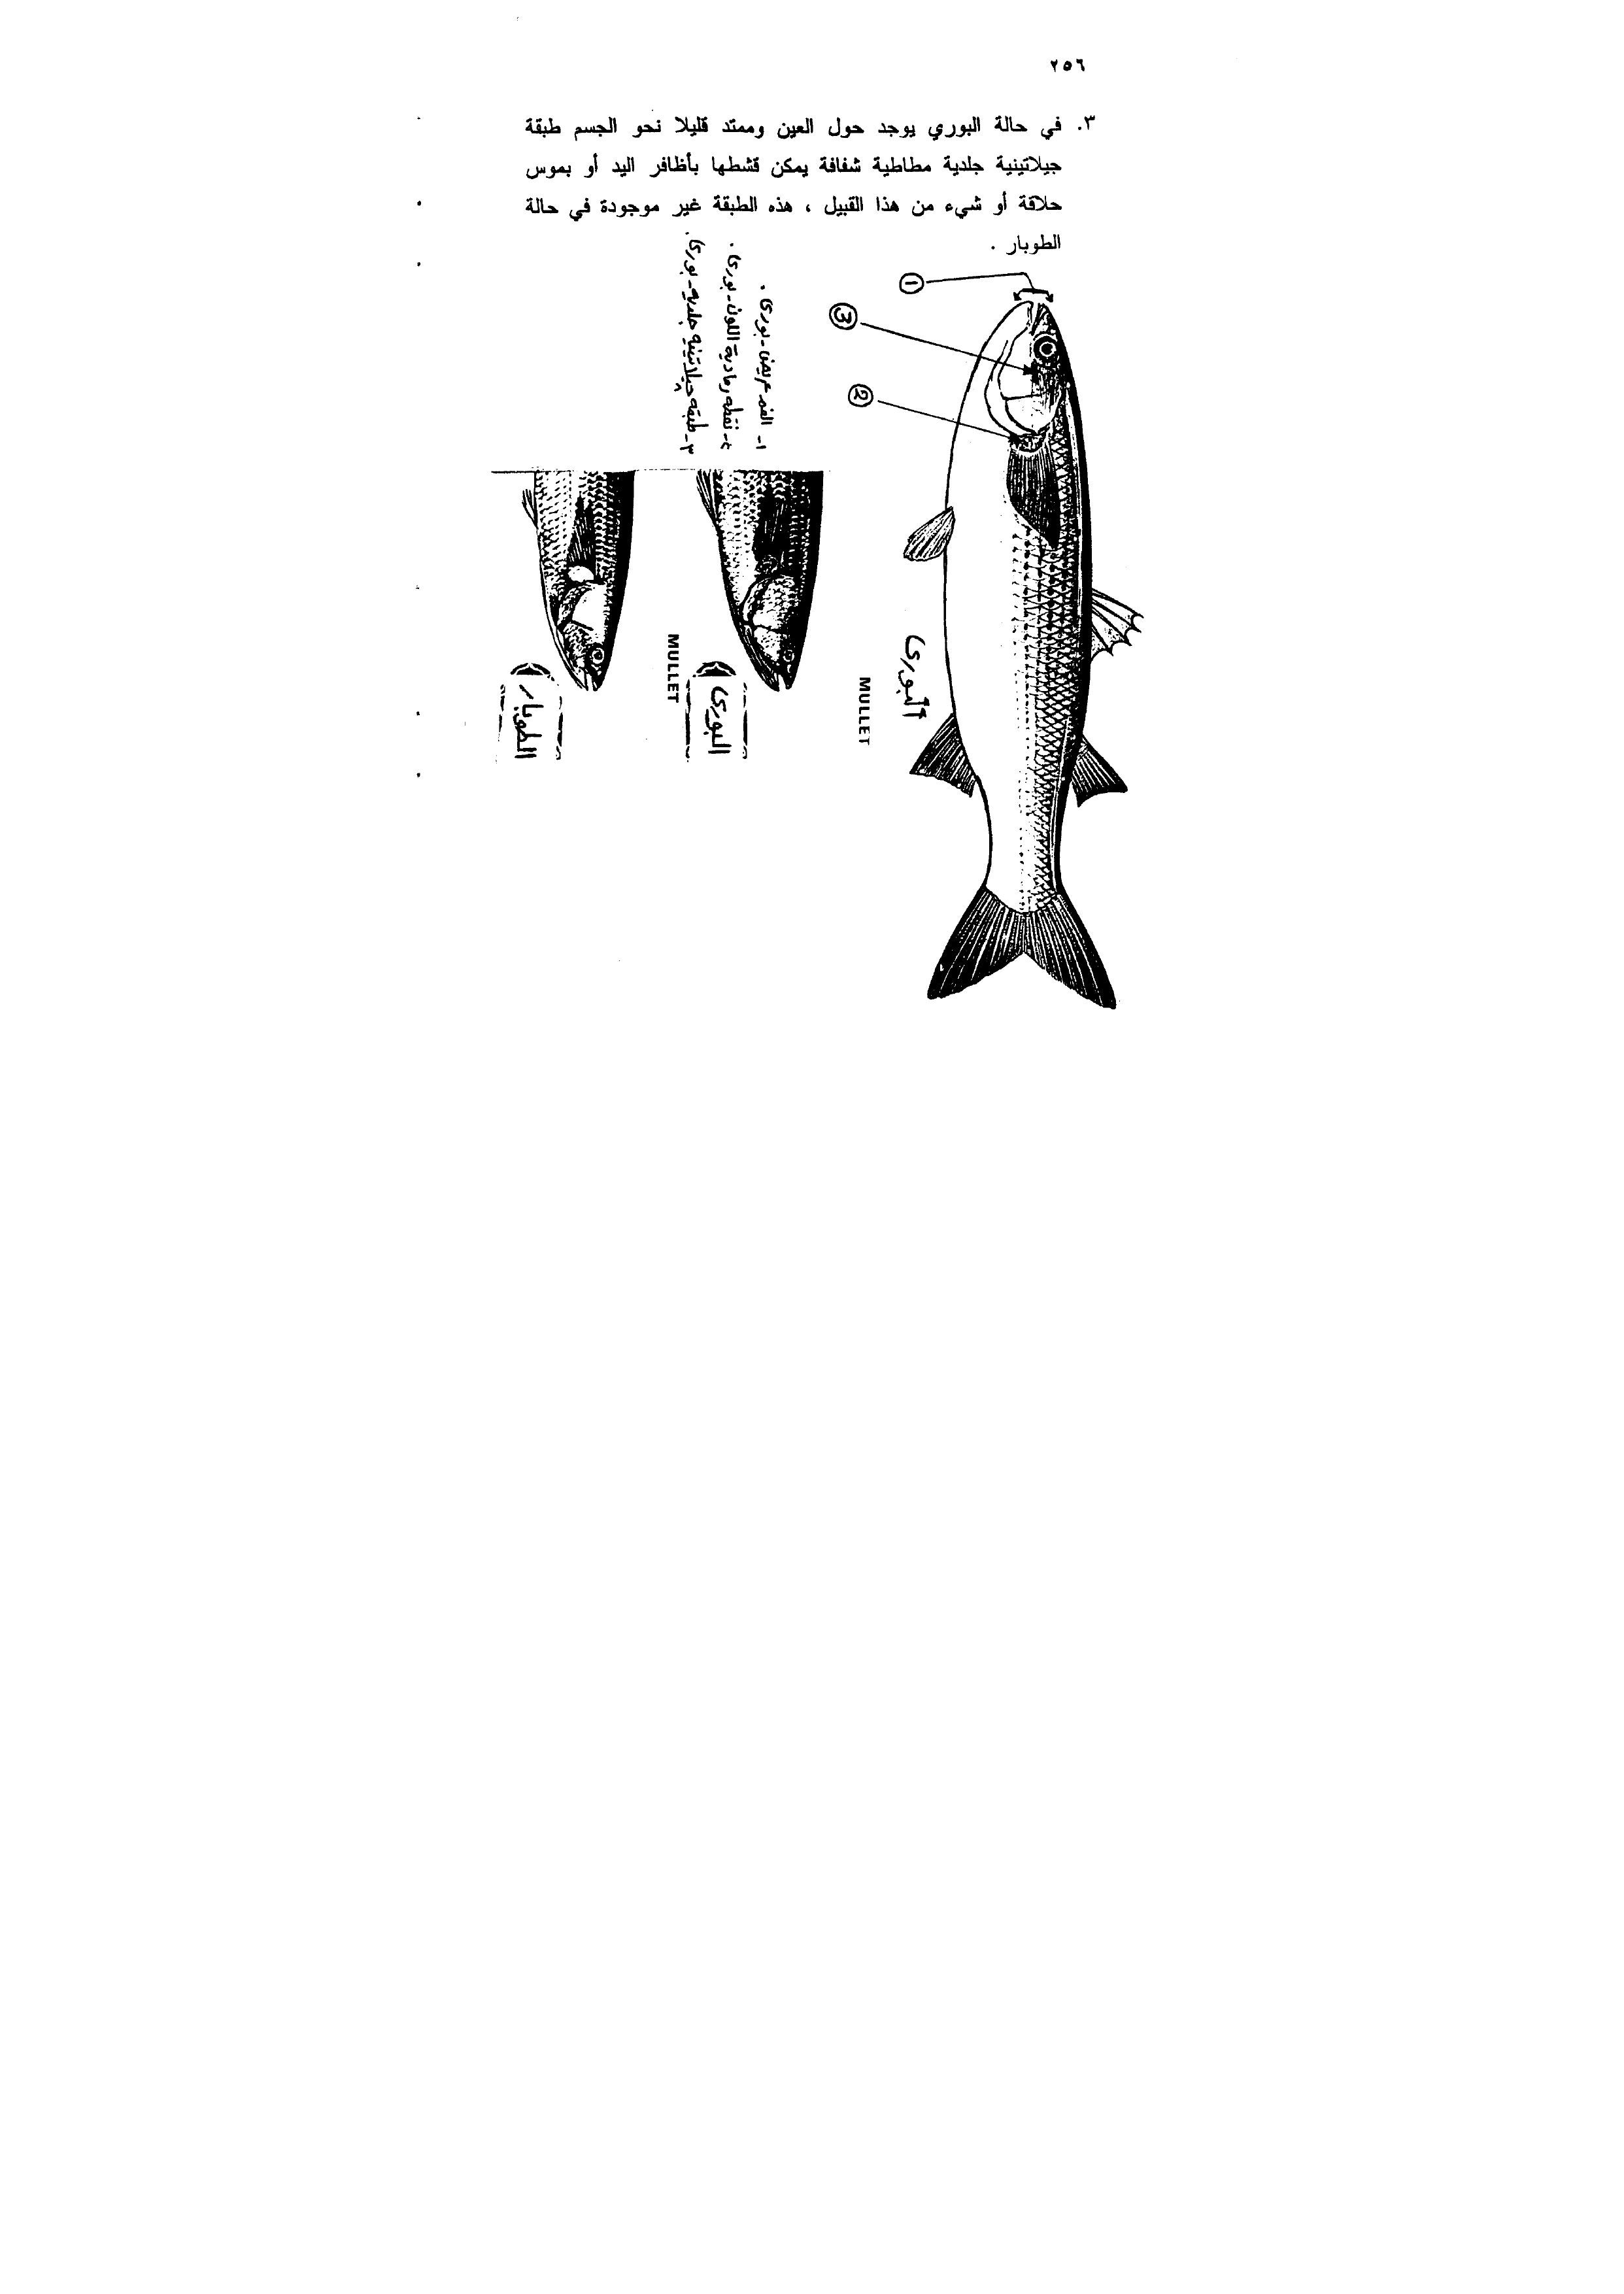 ٢٥٦
٣. في حالة البوري يوجد حول العين وممتد قليلا نحو الجسم طبقة
جيلاتينية جلدية مطاطية شفافة يمكن قشطها بأظافر اليد أو بموس
حلاقة أو شيء من هذا القبيل ، هذه الطبقة غير موجودة في حالة
الطوبار .
1
3
2
البورى
MULLET
١- الفم عريض - بورى .
٢- نقطه رمادية اللون - بورى .
٣- طبقه جيلاتينيه جلديه - بورى .
البورى
MULLET
الطوبار